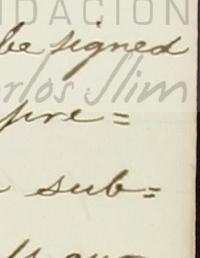 DACIÓN
be signed
Carlos Slim
pre=
sub=